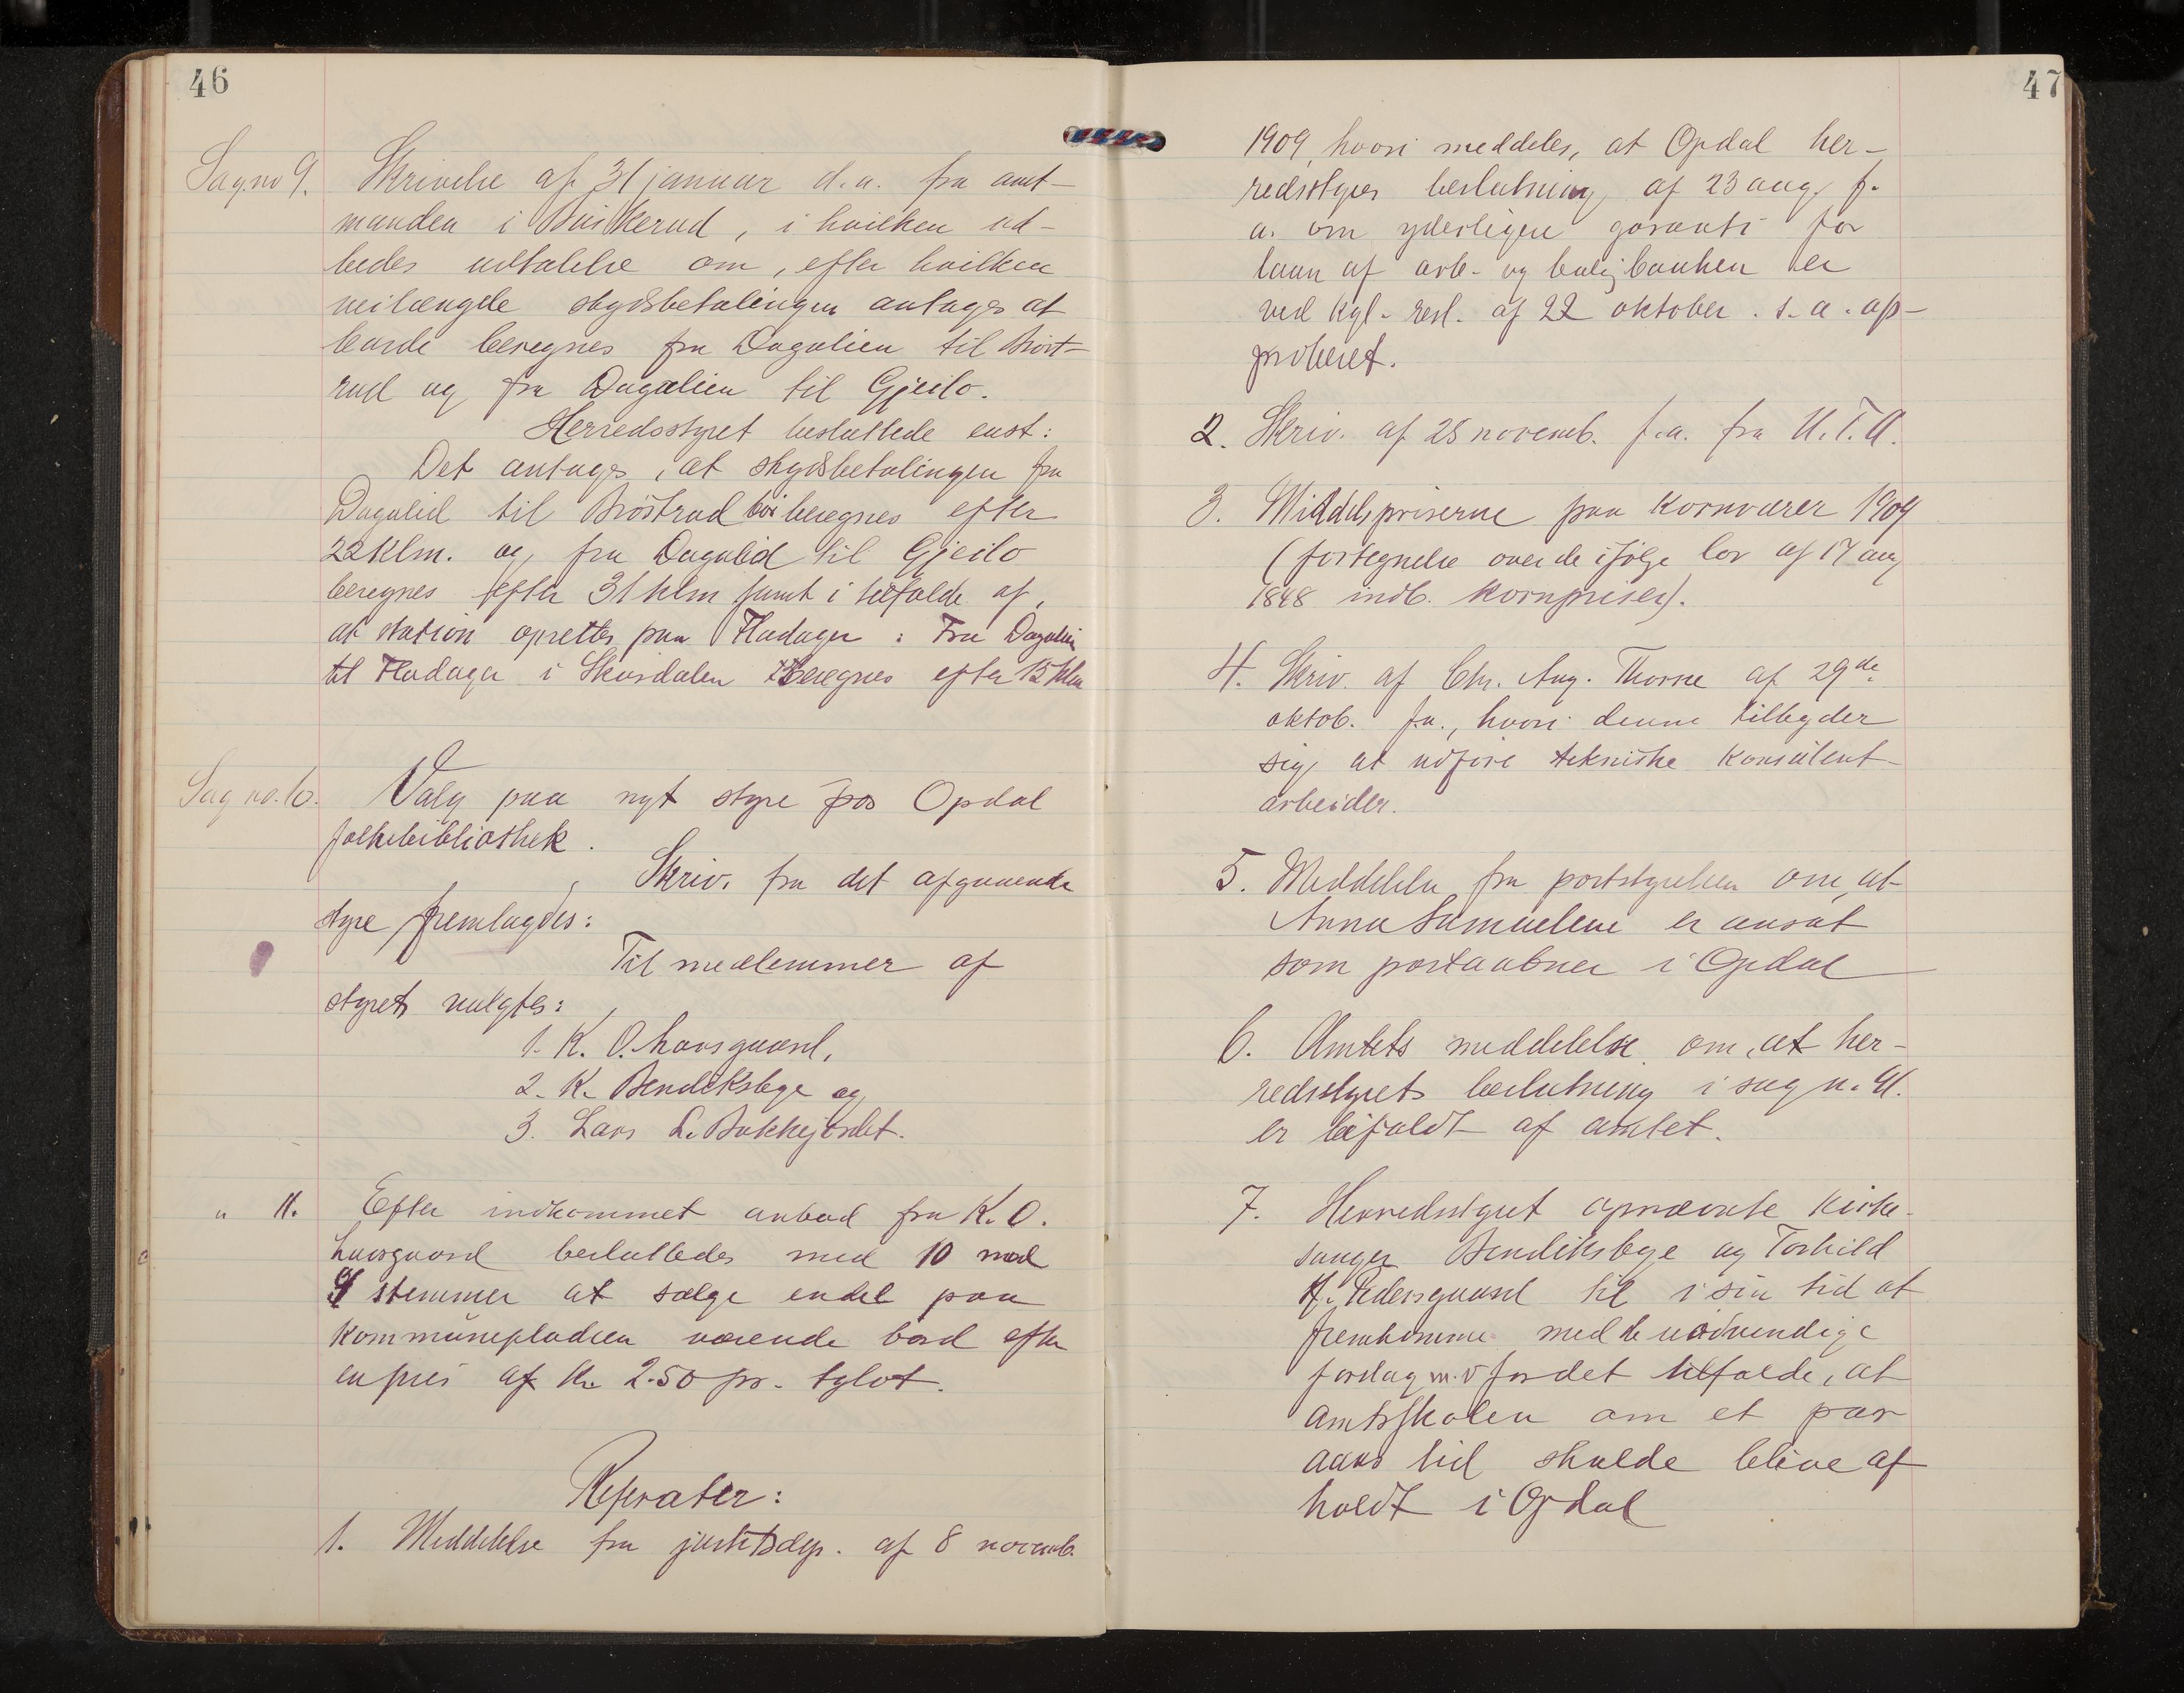 46
Sag no 9. Skrivelse af 31 januar d.a. fra amt-
manden i Buskerud, i hvilken ud-
bedes udtalelse om, efter hvilken
veilængde skydsbetalingen antages at
burde beregnes fra Dagalien til Brøst-
rud og fra Dagalien til Gjeilo.
Herredsstyret besluttede enst:
Det antages, at skydsbetalingen fra
Dagalid til Brøstrud bør beregnes efter
22 Klm. og fra Dagalid til Gjeilo
beregnes efter 31 klm samt i tilfælde af,
at station oprettes paa Fladager: Fra Dagalien
til Fladager i Skurdalen beregnes efter 15 klm
Sag no. 10. Valg paa nyt styre for Opdal
folkebibliothek.
Skriv. fra det afgaaende
styre fremlagdes:
Til medlemmer af
styret valgtes:
1. K. O. Laarsgaard,
2. K. Bendiksbye og
3. Lars L. Bakkejordet.
" 11. Efter indkommet anbud fra K. O.
Laarsgaard besluttedes med 10 mod
4 stemmer at sælge endel paa
kommunepladsen værende bord efter
en pris af Kr. 2.50 pr. tylvt.
Referater:
1. Meddelelse fra justitsdep. af 8 novemb.
47
1909, hvori meddeles, at Opdal her-
redsstyres beslutning af 23 aug. f.
a. om yderligere garanti for
laan af arb.- og boligbanken er
ved kgl. resl. af 22 oktober. s. a. ap-
proberet.
2. Skriv. af 28 novemb. f.a. fra U.T.A.
3. Middelpriserne paa Kornvarer 1909
(fortegnelse over de ifølge lov af 17 aug
1848 indb. kornpriser).
4. Skriv. af Chr. Aug. Thorne af 29de
oktob. f.a., hvori denne tilbyder
sig at udføre tekniske konsulent-
arbeider.
5. Meddelelse fra poststyrelsen om, at
Anna Samuelsen er ansat
som postaabner i Opdal
6. Amtets meddelelse om, at her-
redsstyrets beslutning i sag n. 4.
er bifaldt af amtet.
7. Herredsstyret opnævnte kirke-
sanger Bendiksbye og Torkild
Pedersgaard til i sin tid at
fremkomme med de nødvendige
forslag m.v for det tilfælde, at
amtsskolen om et par
aars tid skulde blive af
holdt i Opdal